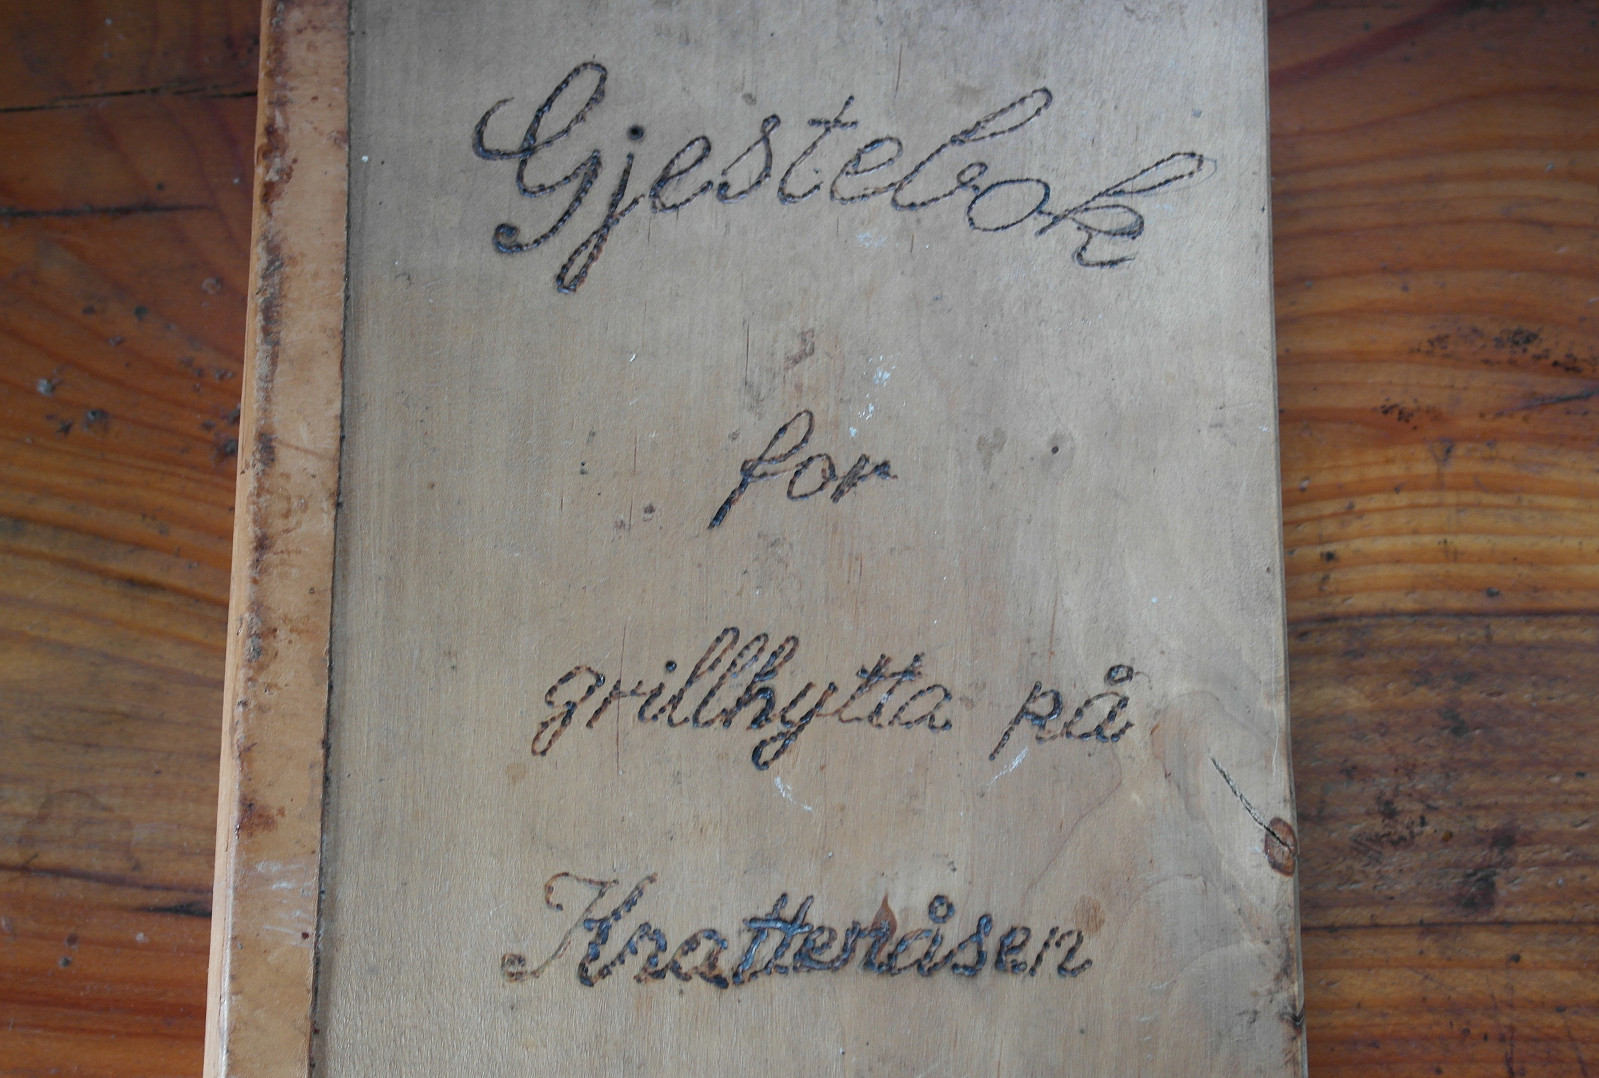 Gjestebok
for
grillhytta på
Kratteråsen